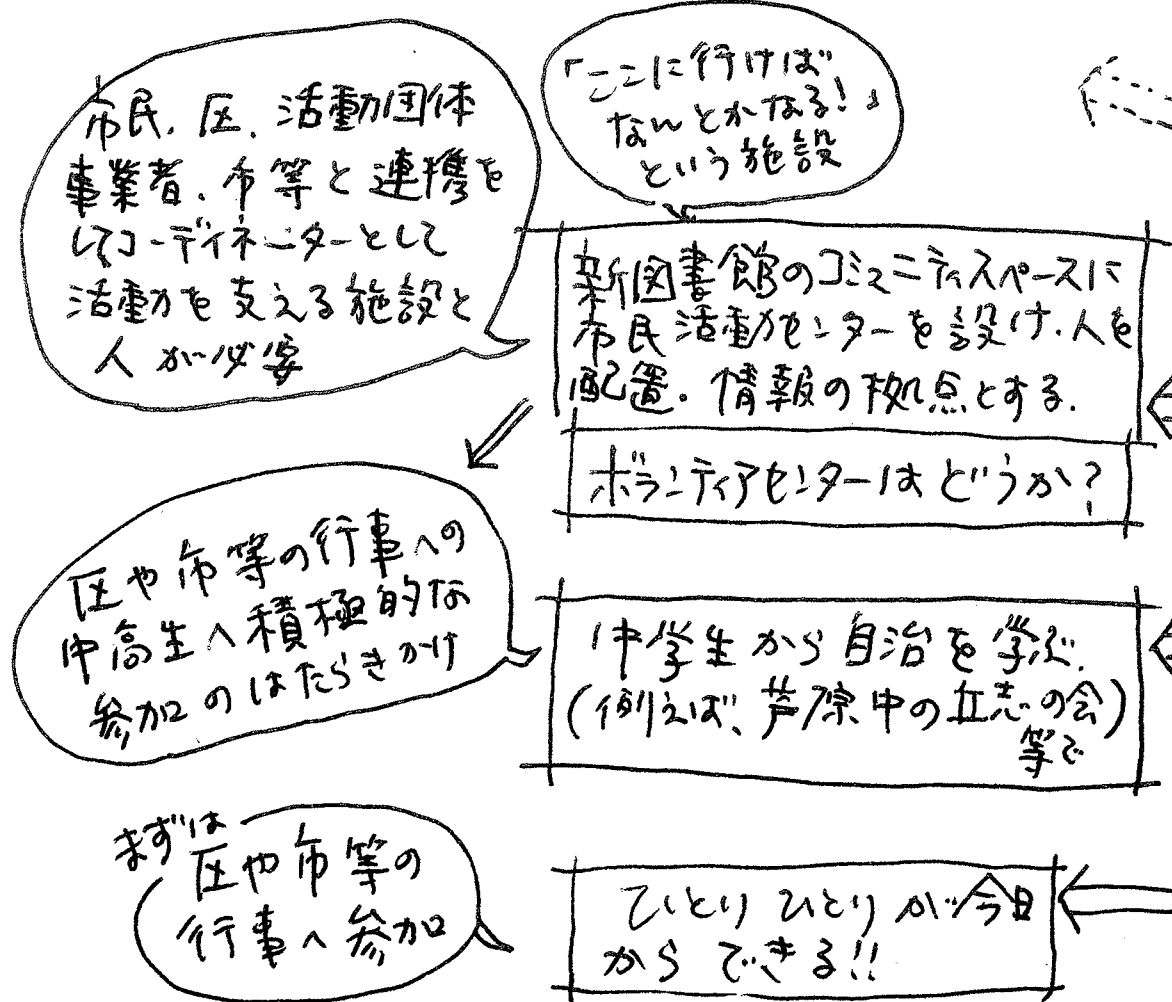 市民、区、活動団体
事業者、市等と連携を
してコーディネーターとして
活動を支える施設と
人が必要
「ここに行けば
なんとかなる!」
という施設
新図書館のコミュニティスペースに
市民活動センターを設け、人を
配置。情報の拠点とする。
ボランティアセンターはどうか?
区や市等の行事への
中高生へ積極的な
参加のはたらきかけ
中学生から自治を学ぶ。
(例えば、芦原中の立志の会)
等で
まずは
区や市等の
行事へ参加
ひとりひとりが今日
からできる!!